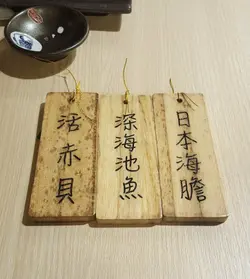 活赤貝
深海池魚
日本海膽